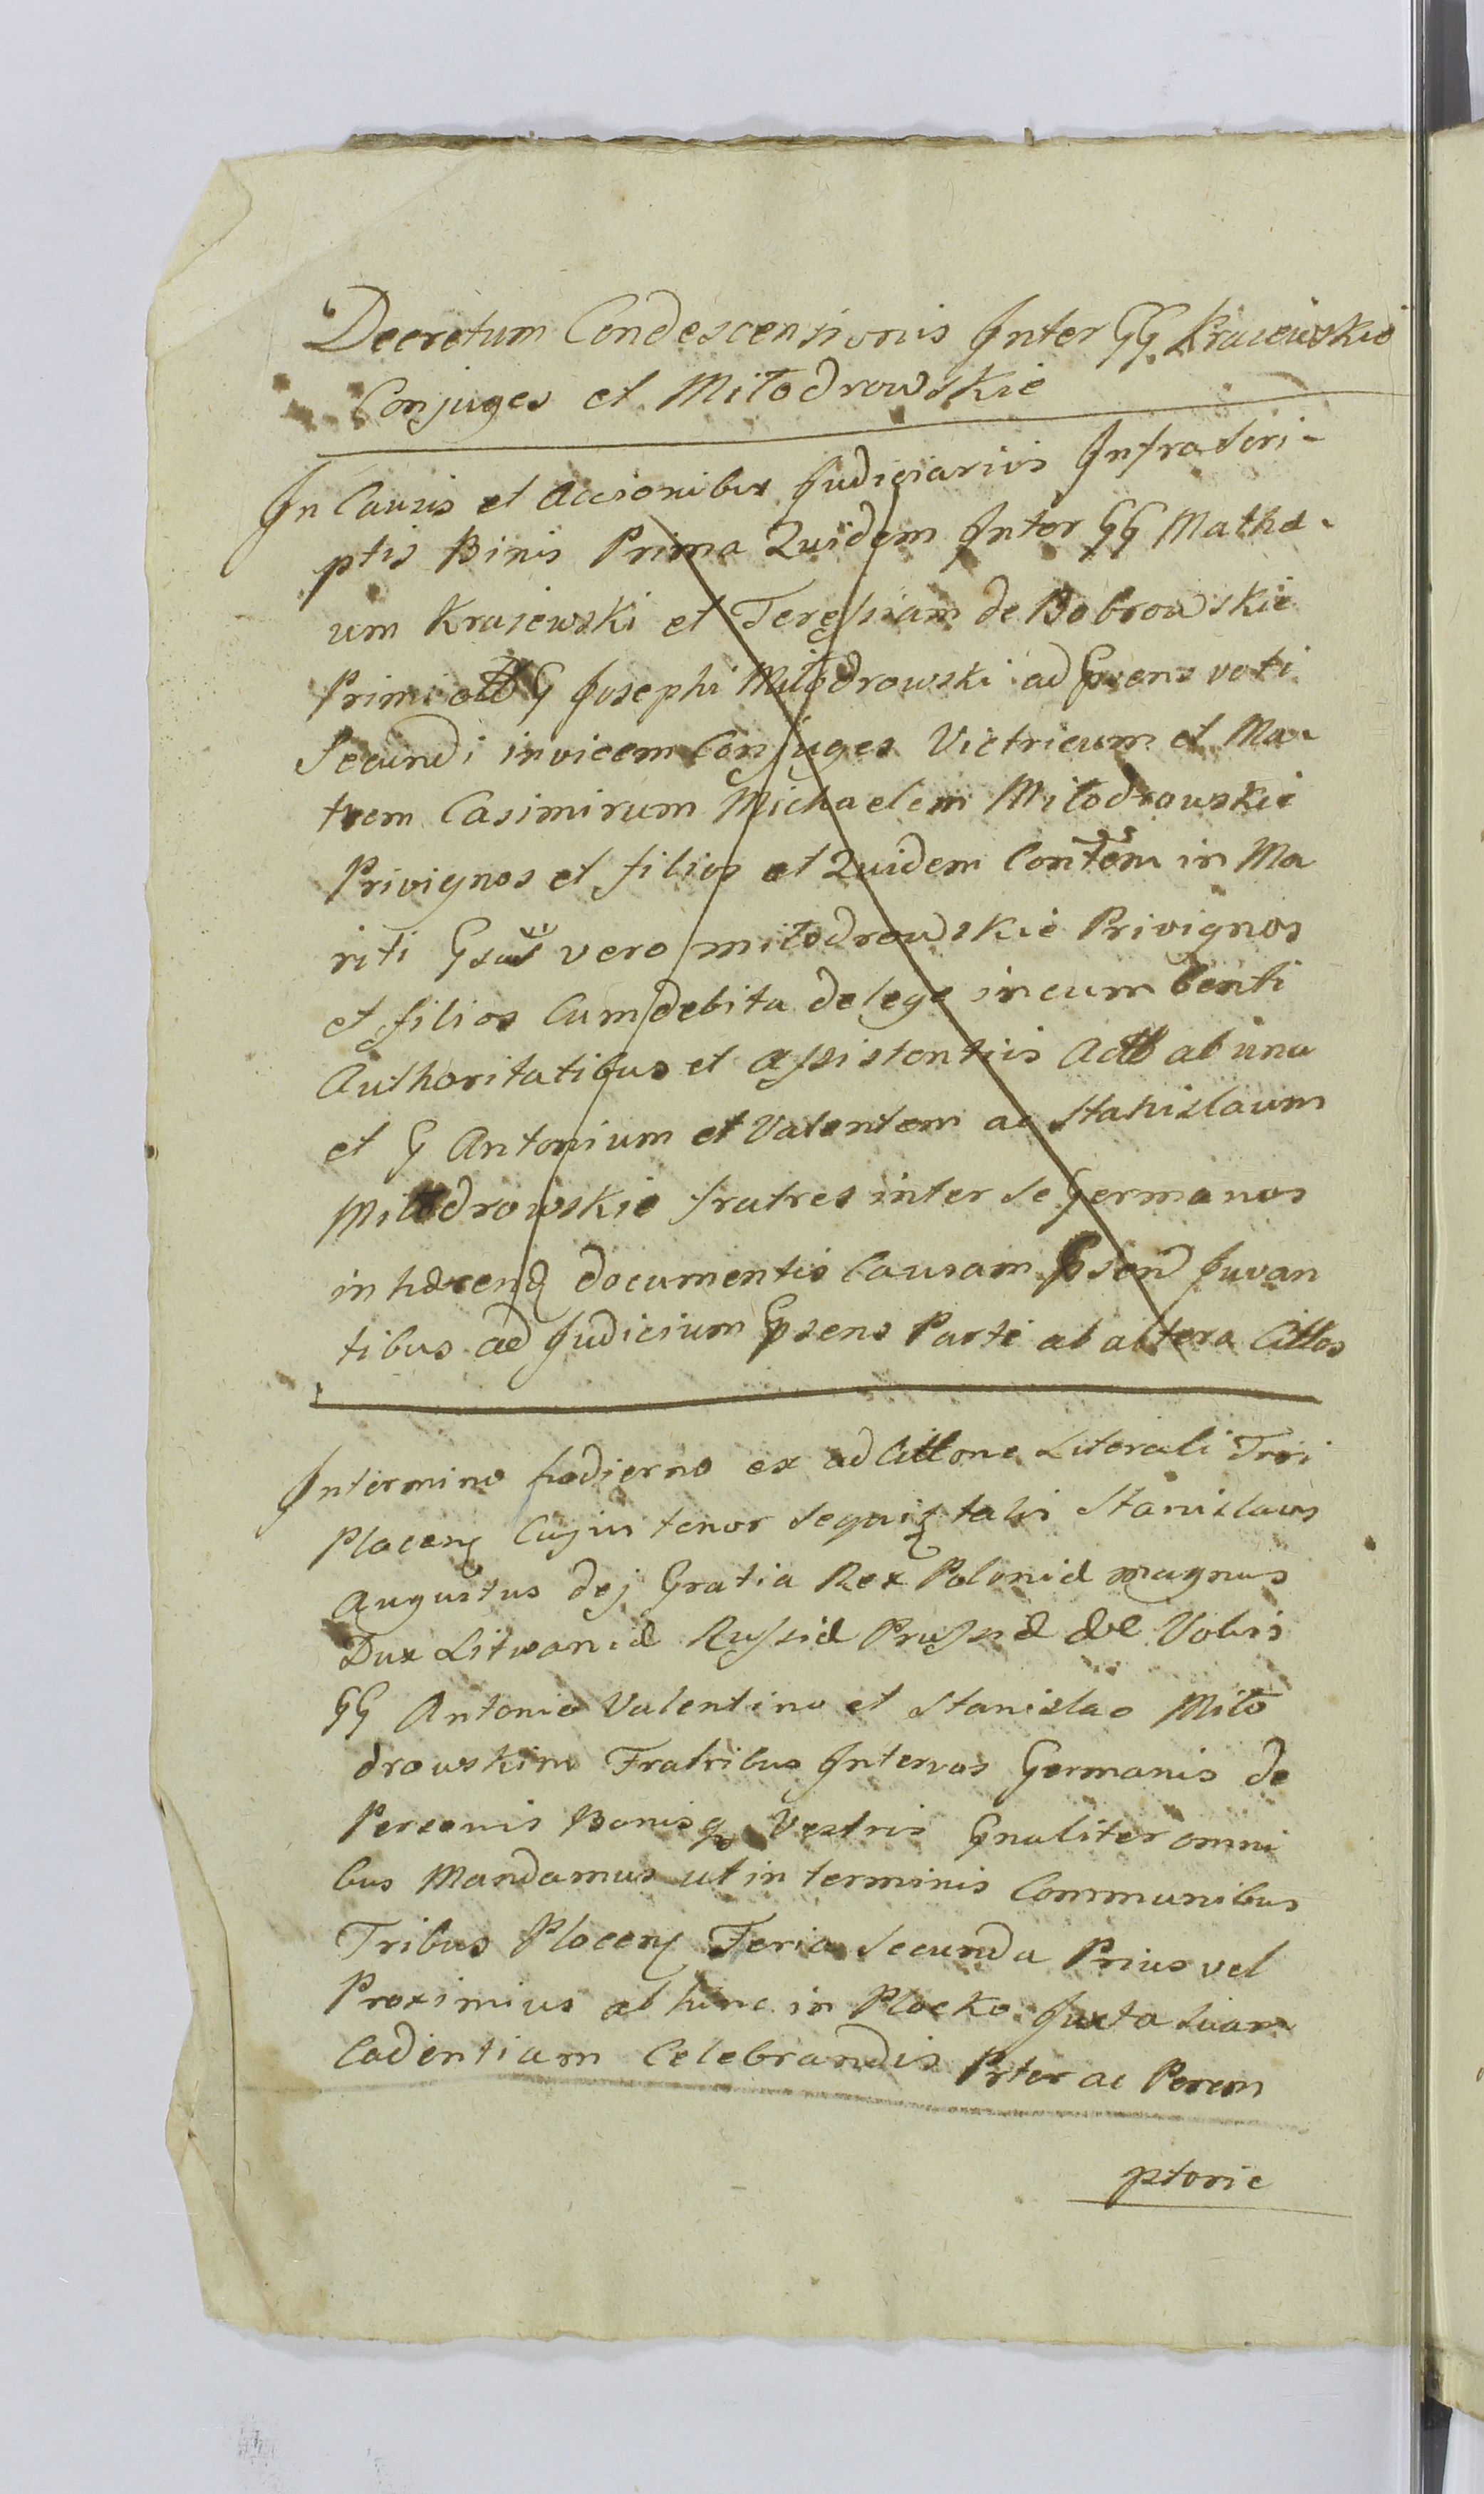 Decretum Condescensionis Inter GG Krajewskie
Conjuges et Miłodrowskie
In Causis et Accionibus Judiciariis Infrascri-
ptis Binis Prima Quidem Inter GG Mathæ-
um Krajewski et Teressiam de Bobrowskie
Primi G Josephi Miłodrowski ad voti
Secundi invicem Conjuges Victricum et Ma-
trem Casimirum Michaelem Miłodrowskie
Privignos et filios et Quidem in Ma
riti vero miłodrowskie Privignos
et filios Cum debita de lege incumbenti
Authoritatibus et assistentiis ab una
et G Antonium et Valentem ac Stanislaum
Miłodrowskie fratres inter se Germanos
inhæren documentis Causam Juvan
tibus ad Judicium Parte ab altera Cittos
In termino hodierno ex ad Literali
Placen Cujus tenor sequit talis Stanislaus
Augustus dej Gratia Rex Poloniæ magnus
Dux Litwaniæ Russiæ Prussiæ Vobis
GG Antonio Valentino et Stanislao Miło
drowskim Fratribus Inter vos Germanis de
Personis Bonisq Vestris Gnaliter omni
bus Mandamus ut in terminis Communibus
Tribus Plocen Feria Secunda Prius vel
Proximius ab hinc in Plocko Juxta suam
Cadentiam Celebrandis Prter ac Perem
ptorie